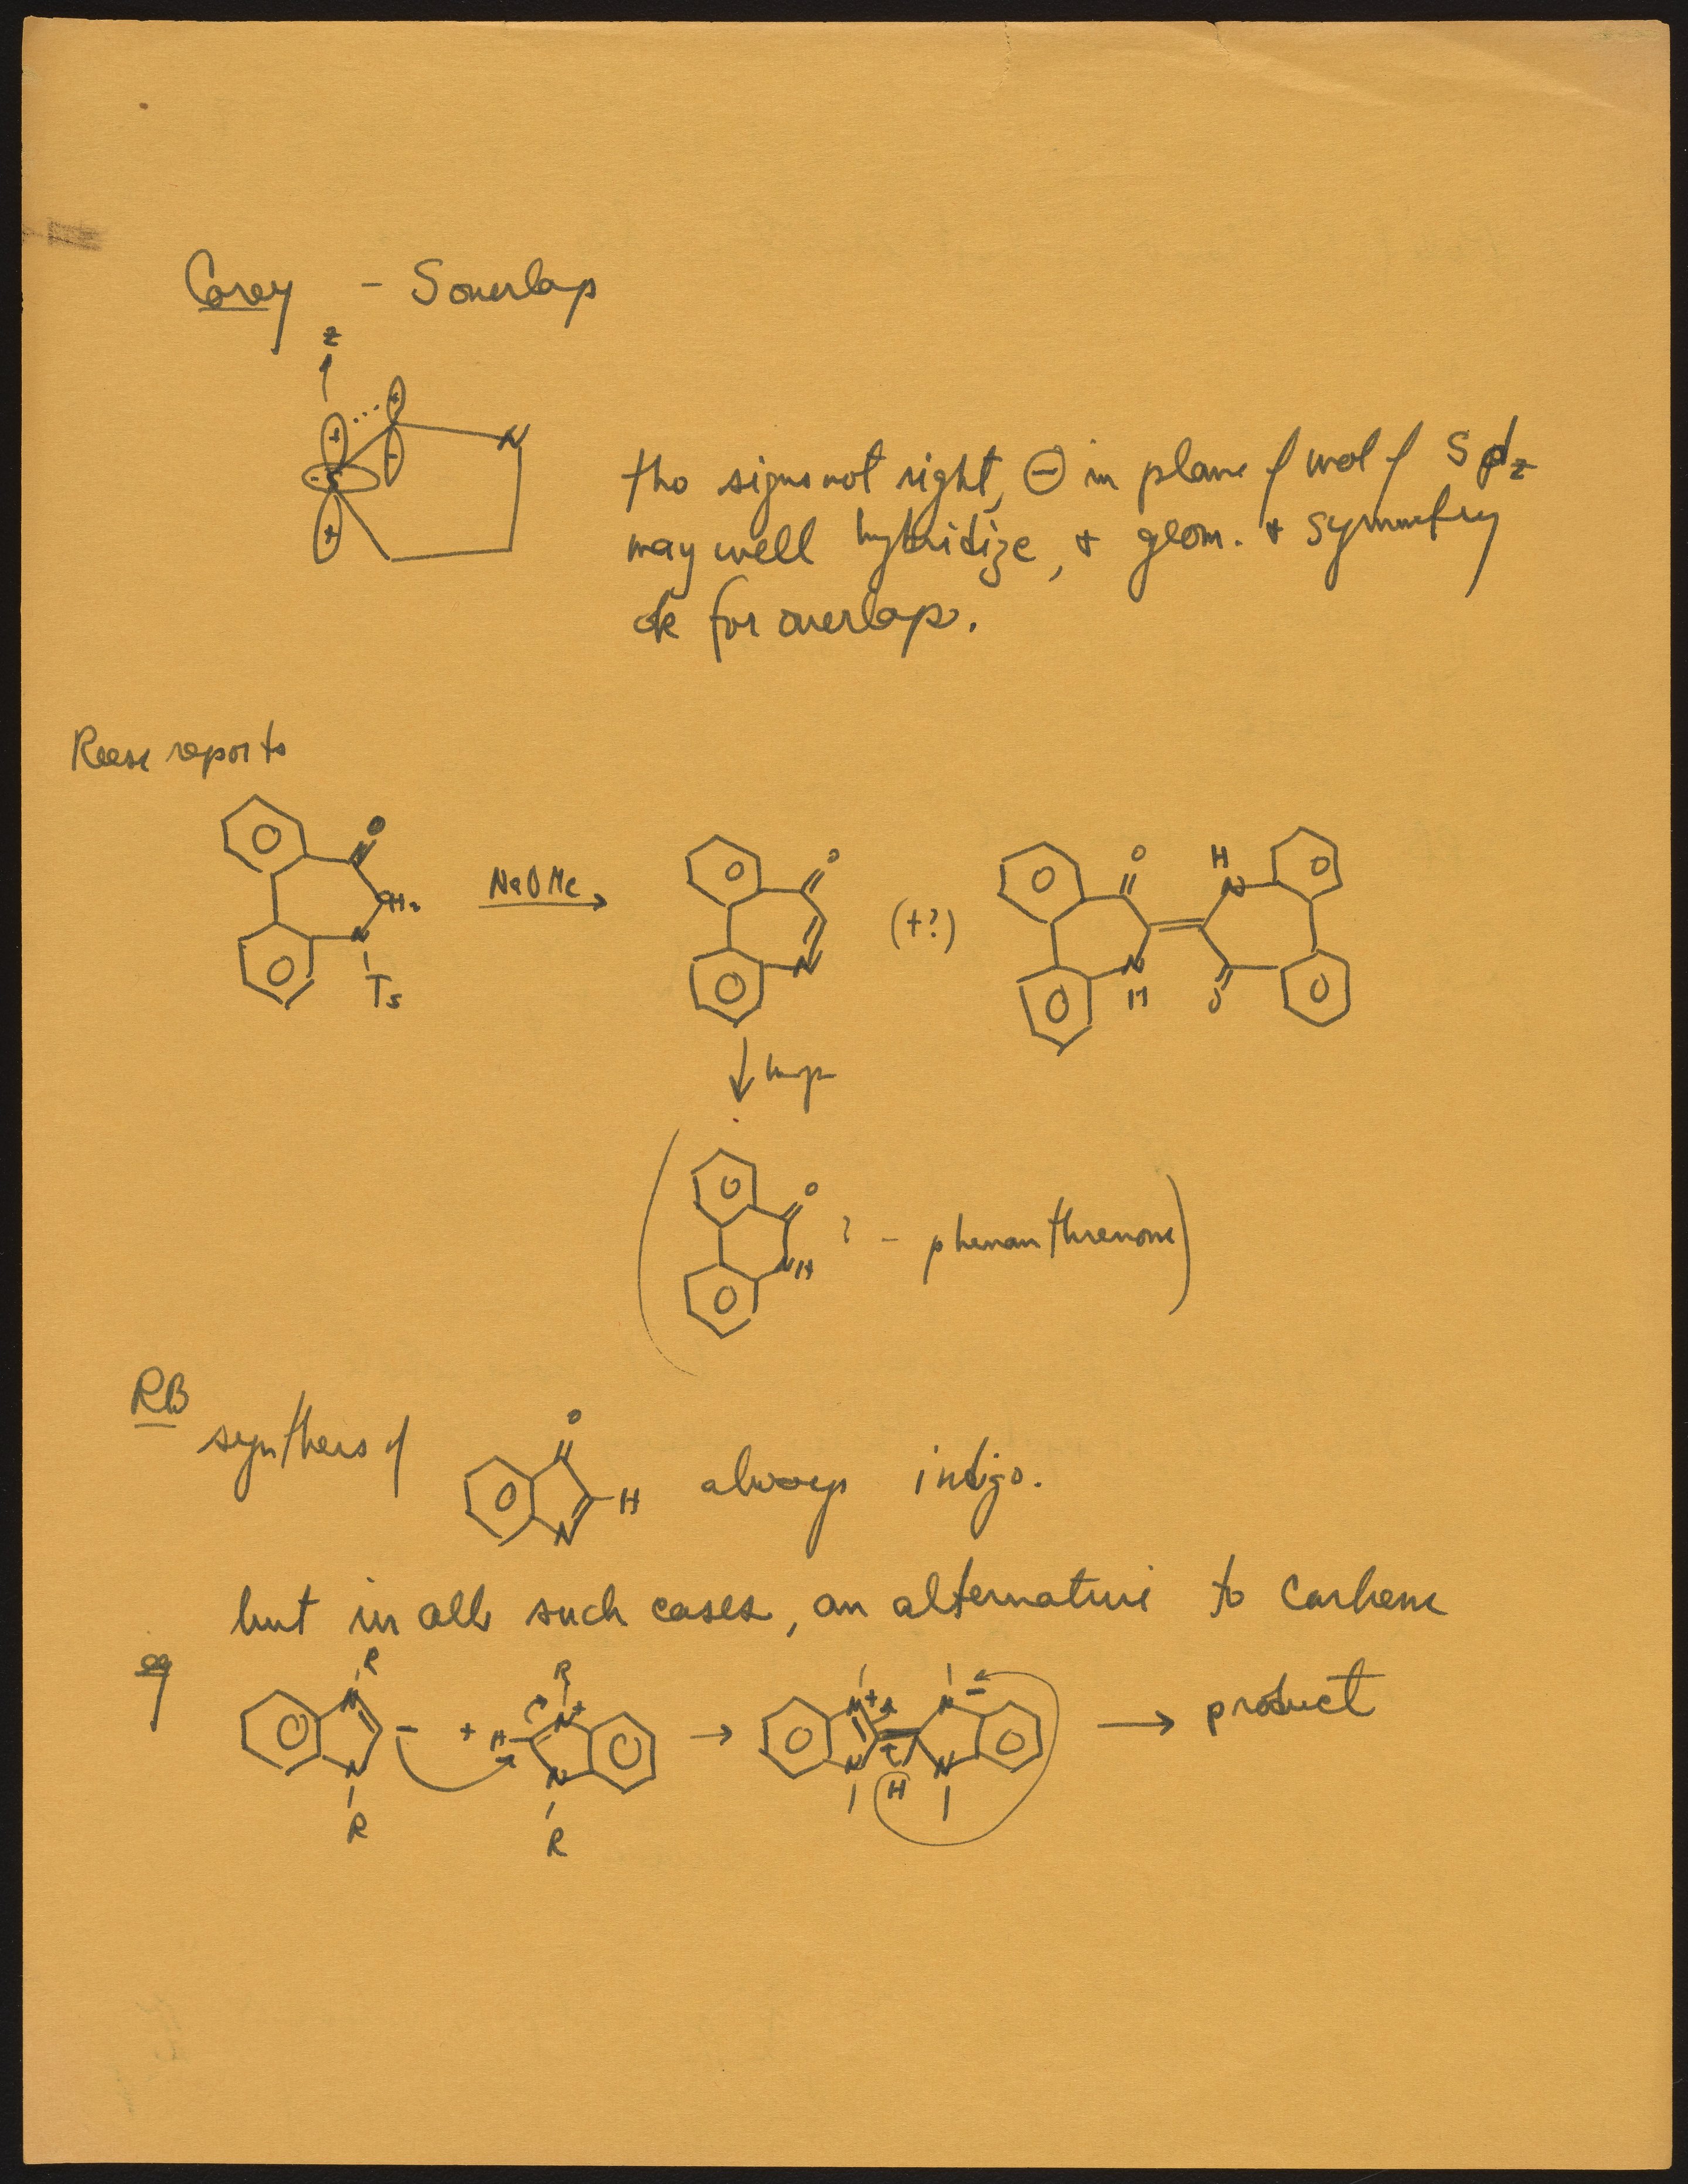 Corey - S overlap
z
N
+ + - - S +
tho signs not right, ⊖ in plane of mol of S dz
may well hybridize, + geom. + symmetry
ok for overlap.
Reese reports
O
CH2
N
Ts
NaOMe
O
N
(+?)
O
N
H
H
N
O
O
NH
? - phenanthrenone
RB
synthesis of
O
H
N
always indigo.
but in all such cases, an alternative to carbene
eg
R
N
-
N
R
+
R
N+
H
N
R
N+
N
H
N-
N
product